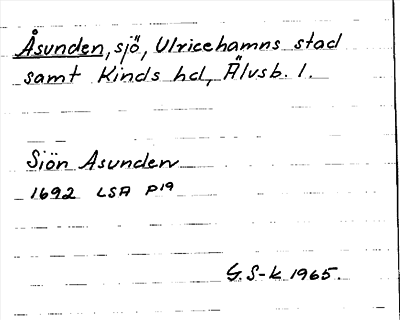 Åsunden, sjö, Ulricehamns stad
samt Kinds hd, Älvsb. l.
Siön Asunden
1692 LSA P19
G. S-k 1965.